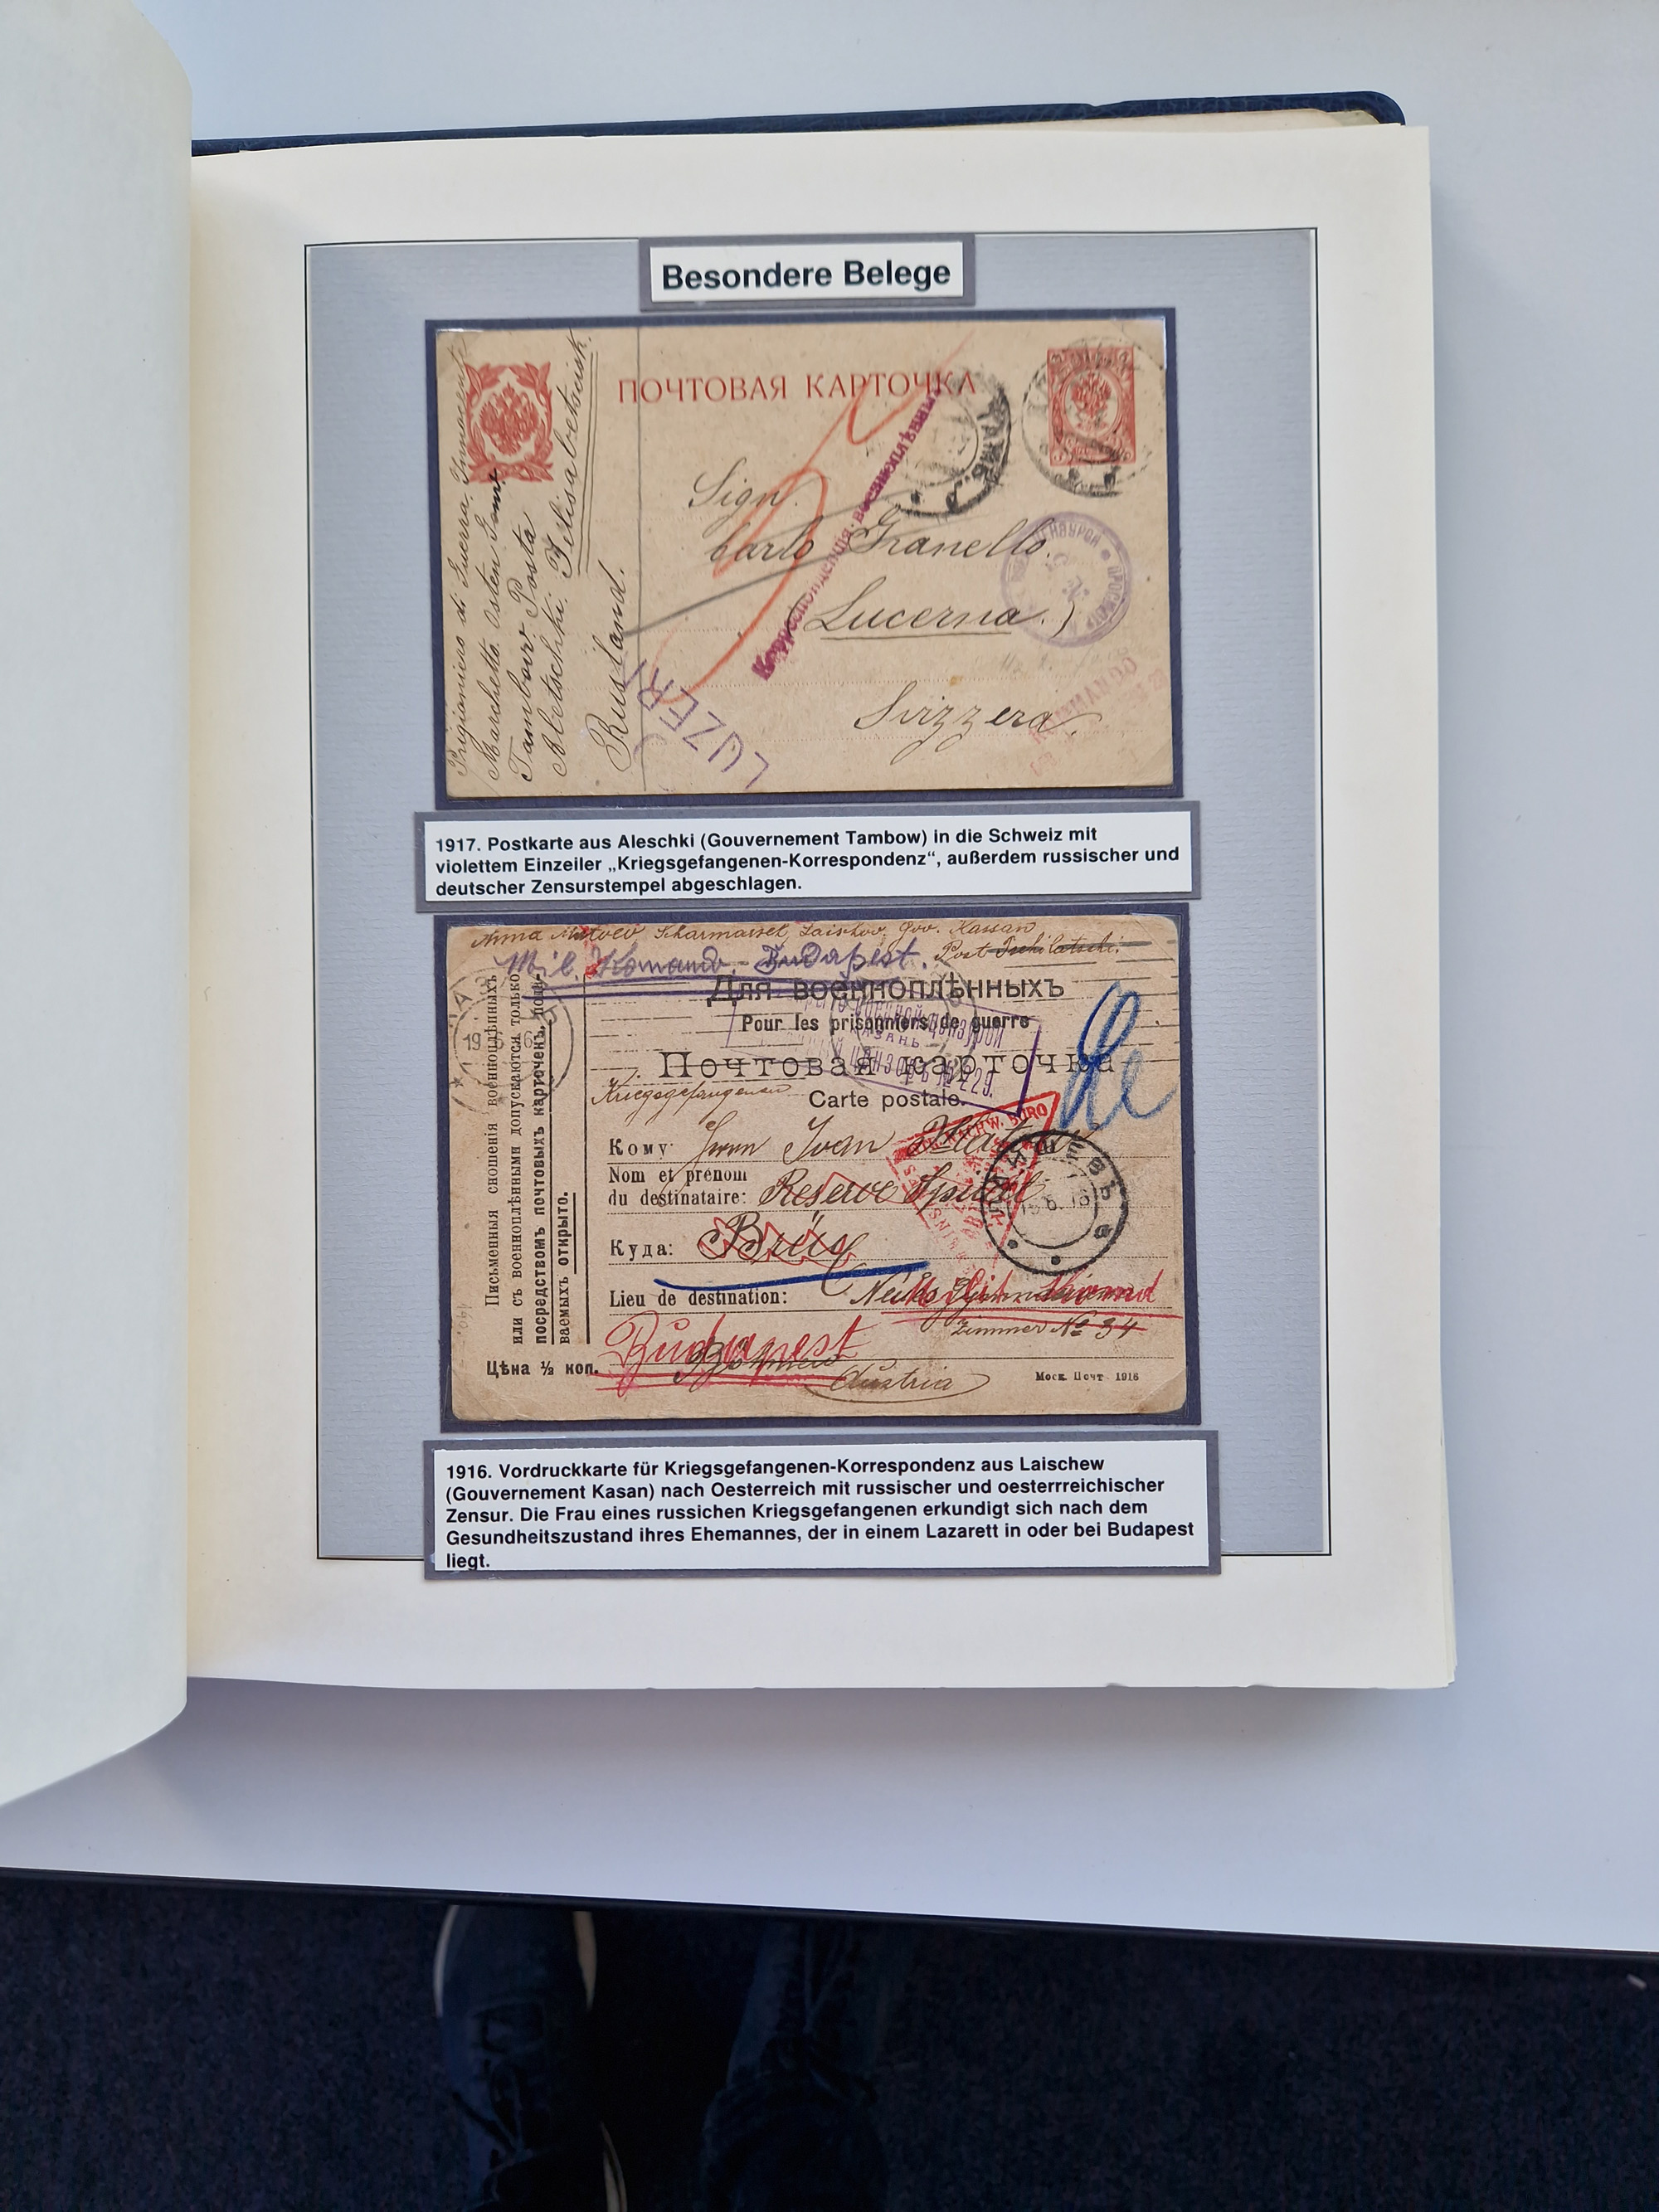 Besondere Belege
ПОЧТОВАЯ КАРТОЧКА
Prigioniero di Guerra.
Marchetto Osten
Tambow. Posta
Aletschki. Jelisabetscisk.
Russland.
Корреспонденція военноплѣнныхъ
Sign.
Carlo Granello.
Lucerna.
Svizzera.
LUZERN
1917. Postkarte aus Aleschki (Gouvernement Tambow) in die Schweiz mit
violettem Einzeiler „Kriegsgefangenen-Korrespondenz“, außerdem russischer und
deutscher Zensurstempel abgeschlagen.
Anna Scharmarset Laischov, Gov. Kassan
Post Tschilatschi.
Mil. Komando - Budapest.
Для военноплѣнныхъ
Pour les prisonniers de guerre
Почтовая карточка
Carte postale.
Kriegsgefangenen
Письменныя сношенія военноплѣнныхъ
или съ военноплѣнными допускаются только
посредствомъ почтовыхъ карточекъ,
ваемыхъ открыто.
Кому
Herrn Ivan
Nom et prénom
du destinataire:
Reserve Spital
Куда:
Brüx
Lieu de destination:
Zimmer № 34
Budapest
Böhmen
Austria
Цѣна ½ коп.
Моск. Почт 1916
1916. Vordruckkarte für Kriegsgefangenen-Korrespondenz aus Laischew
(Gouvernement Kasan) nach Oesterreich mit russischer und oesterrreichischer
Zensur. Die Frau eines russichen Kriegsgefangenen erkundigt sich nach dem
Gesundheitszustand ihres Ehemannes, der in einem Lazarett in oder bei Budapest
liegt.